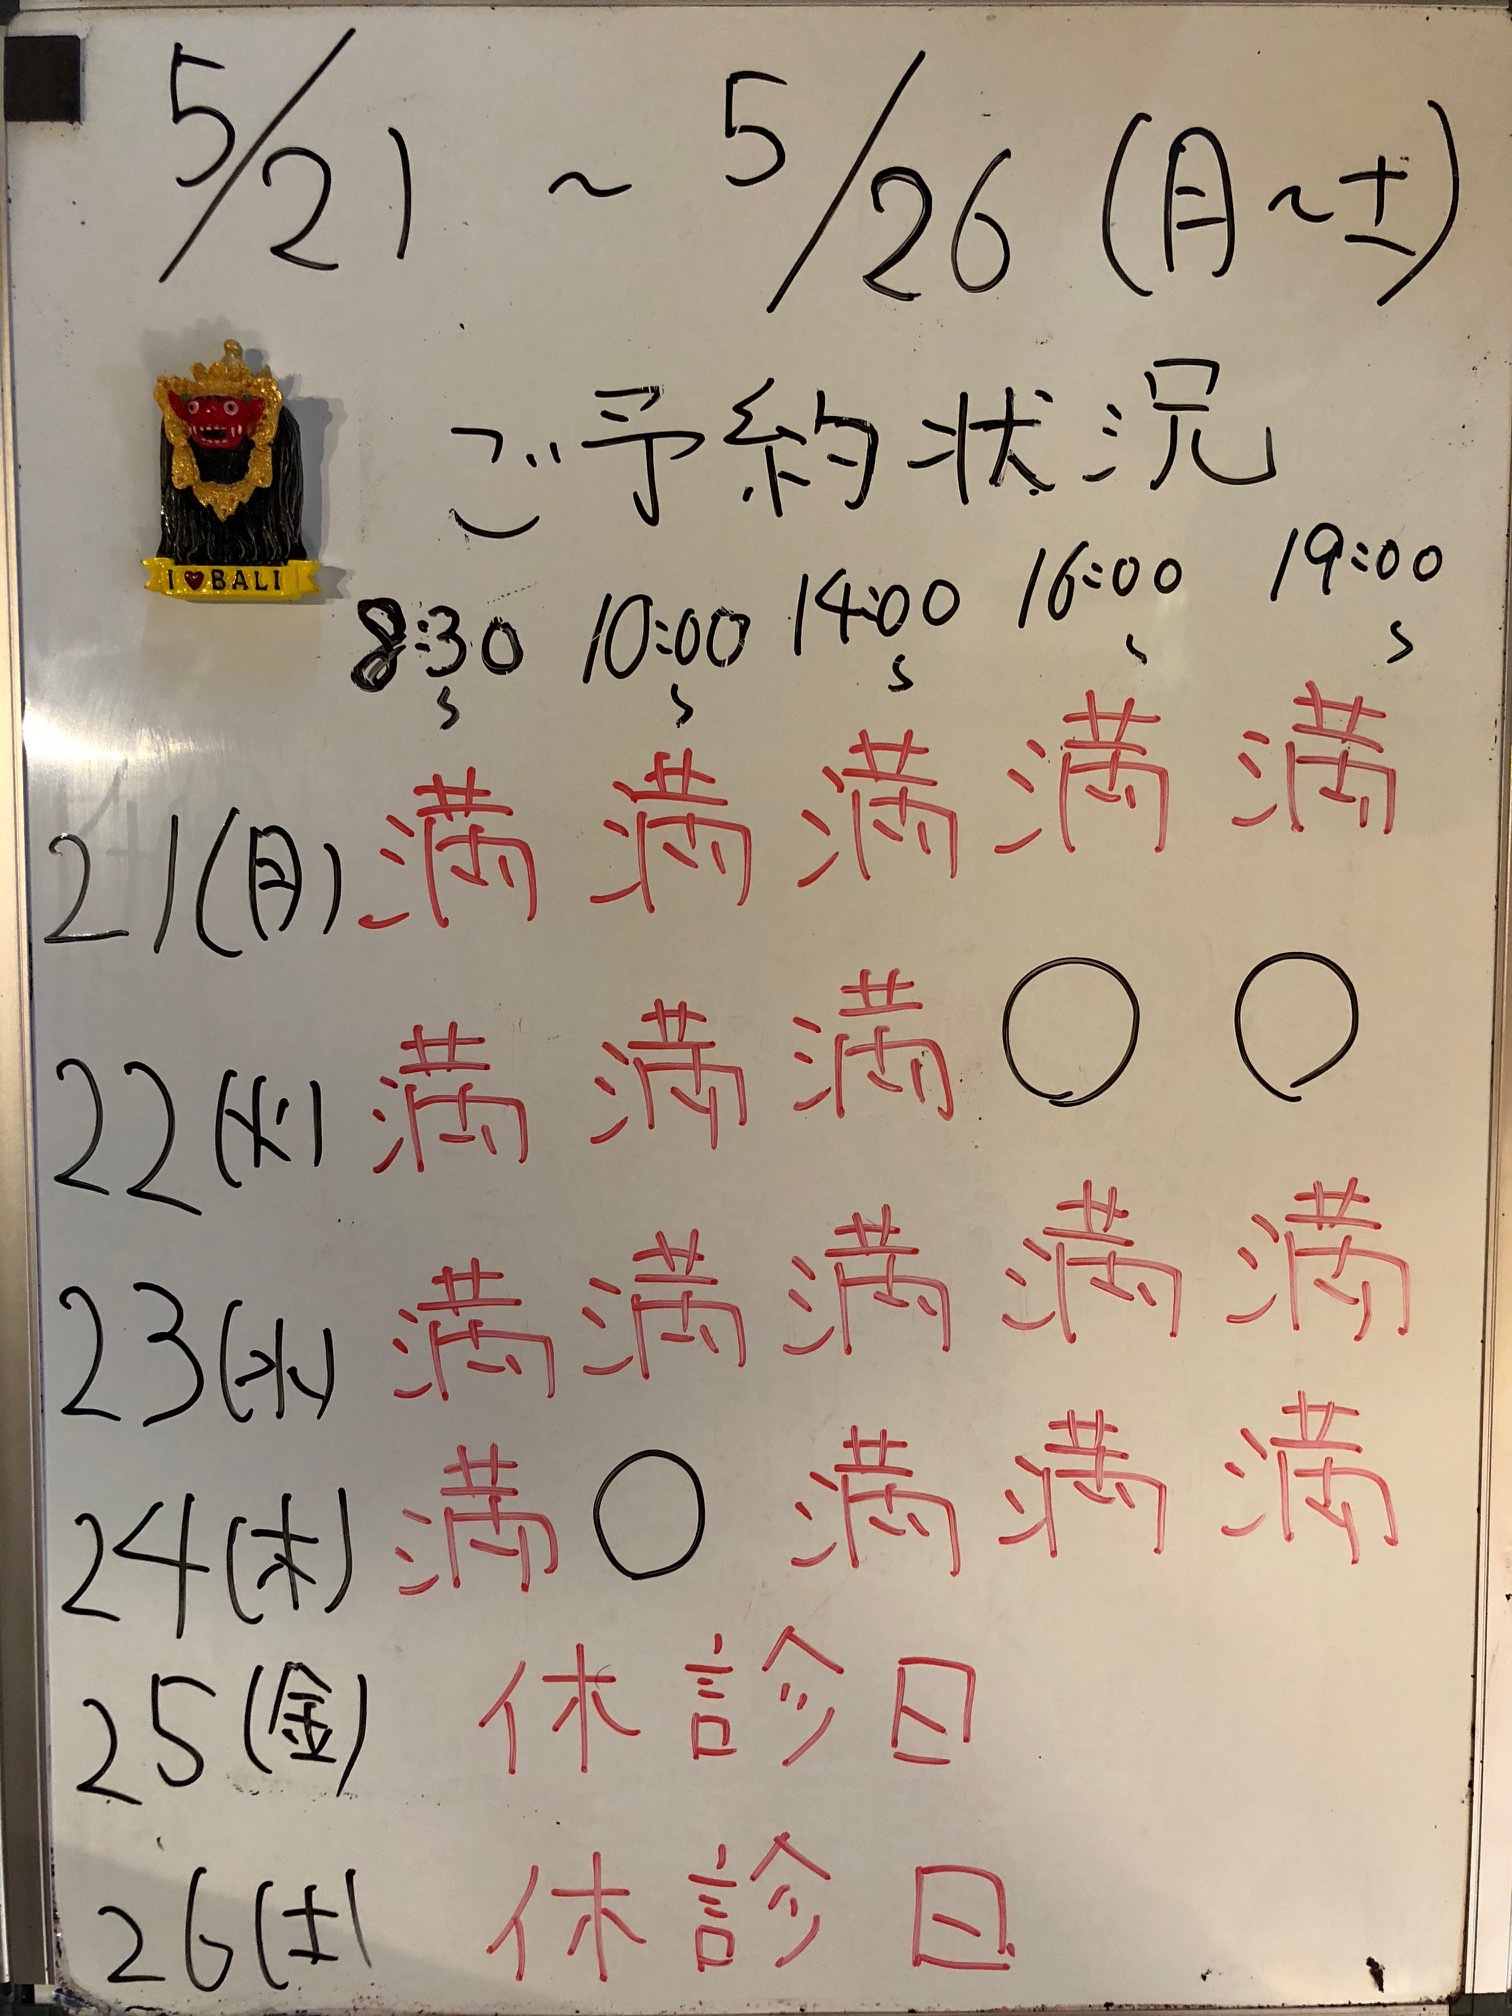 5/21 ~ 5/26 (月~土)
ご予約状況
I ♥ BALI
8:30~ 10:00~ 14:00~ 16:00~ 19:00~
21(月) 満 満 満 満 満
22(火) 満 満 満 ○ ○
23(水) 満 満 満 満 満
24(木) 満 ○ 満 満 満
25(金) 休診日
26(土) 休診日